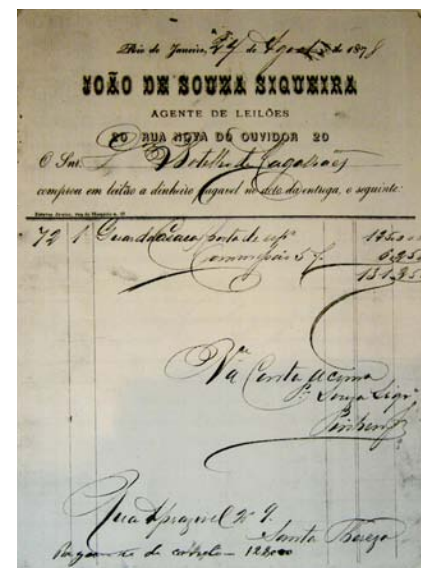 Rio de Janeiro, 24 de Agosto de 1878
JOÃO DE SOUZA SIQUEIRA
AGENTE DE LEILÕES
20 RUA NOVA DO OUVIDOR 20
O Snr. Botelho de Magalhães
comprou em leilão a dinheiro pagavel no acto da entrega, o seguinte:
72 1 Guarda casaca porta de espº 125.000
Commissão 5 % 6.250
131.250
Conta acima
Souza Siqrª
Rua Aprazivel Nº 9.
Santa Thereza
de 12$000